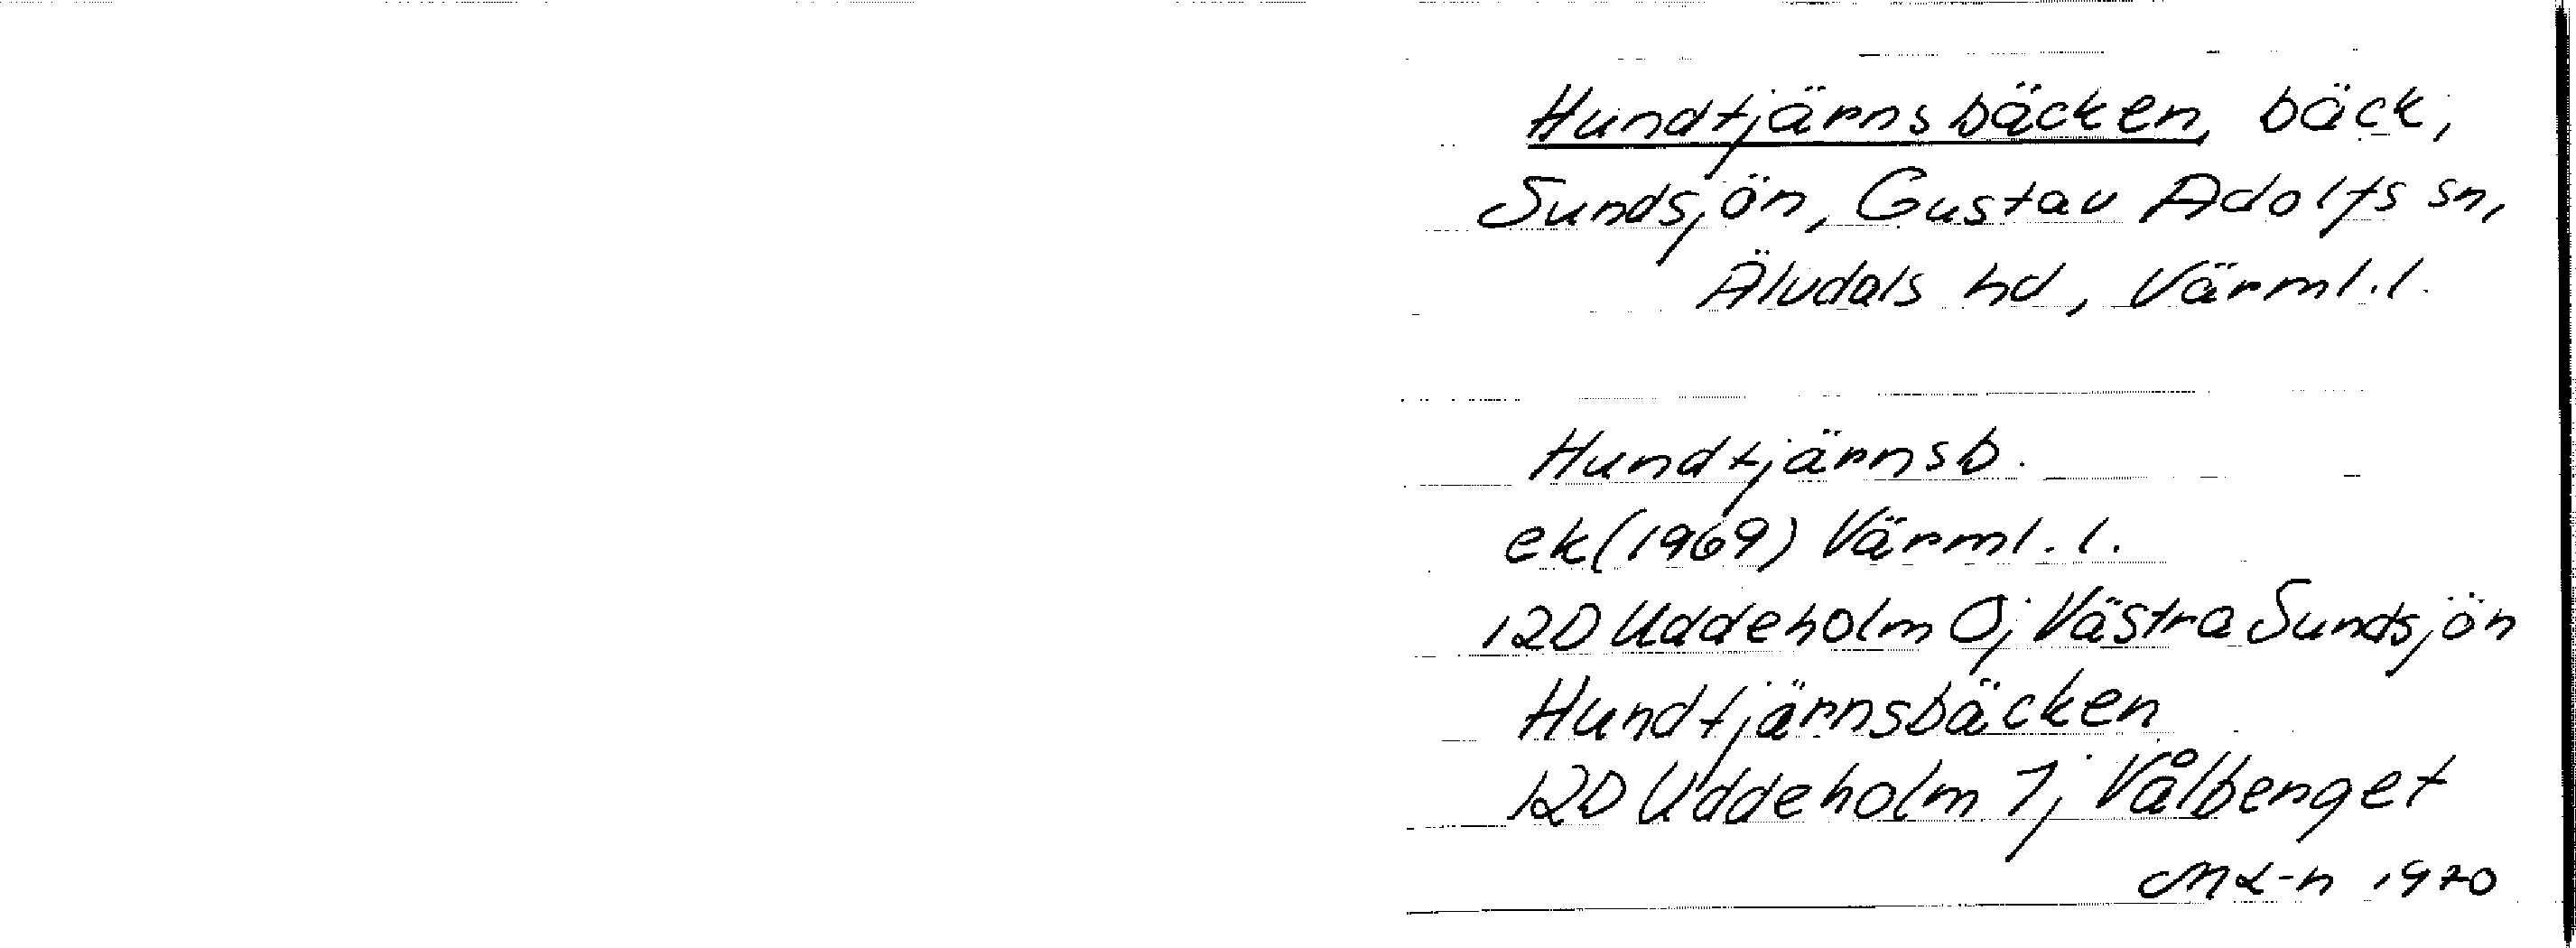 Hundtjärnsbäcken, bäck,
Sundsjön, Gustav Adolfs sn,
Älvdals hd, Värml.l.
Hundtjärnsb.
ek(1969) Värml.l.
12D Uddeholm 0j Västra Sundsjön
Hundtjärnsbäcken
12D Uddeholm 1j Vålberget
1970